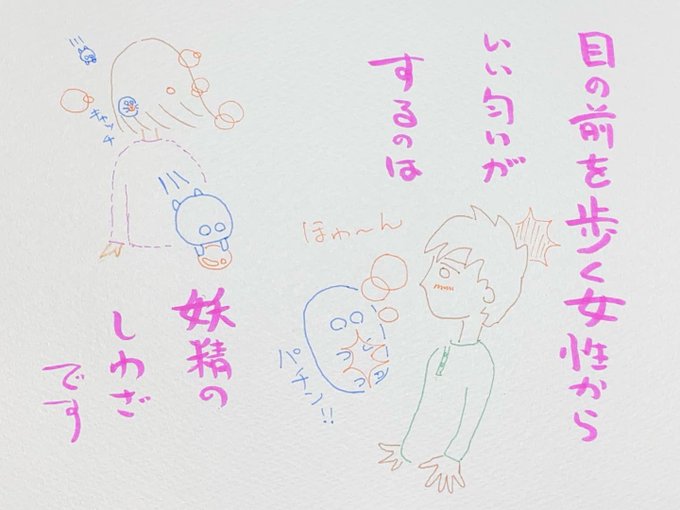 目の前を歩く女性から
いい匂いが
するのは
ほわ〜ん
パチン!!
キャッチ
妖精の
しわざ
です